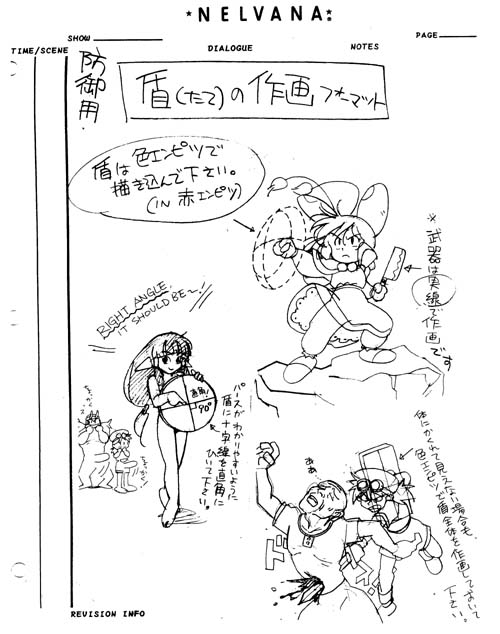 NELVANA
SHOW
PAGE
TIME/SCENE
DIALOGUE
NOTES
防御用
盾(たて)の作画フォーマット
盾は色エンピツで
描き込んで下さい。
(IN 赤エンピツ)
※武器は実線で作画です
RIGHT ANGLE,
IT SHOULD BE~!
直角!
90°
パースがわかりやすいように
盾に十字線を直角に
ひいて下さい。
ちょっかく
ちょっかく
体にかくれて見えない場合も、
色エンピツで盾全体を作画しておいて
下さい。
ああ
REVISION INFO